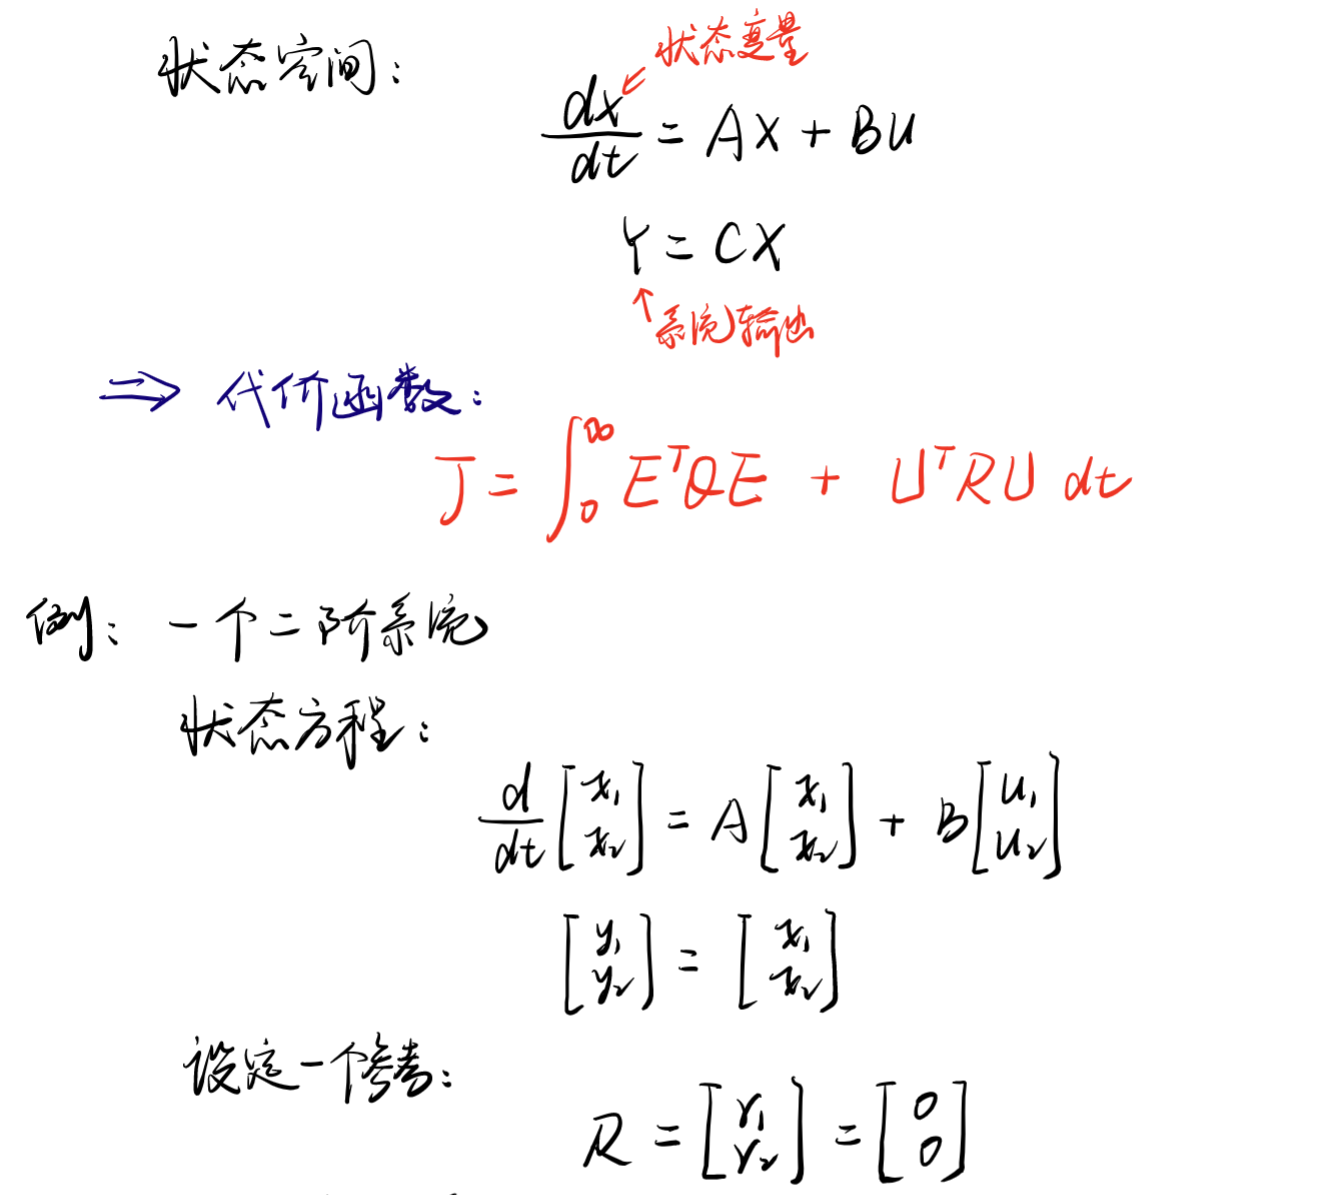 状态空间: 状态变量
dx/dt = AX + BU
Y = CX
系统输出
⇒ 代价函数:
J = ∫₀^∞ EᵀQE + UᵀRU dt
例: 一个二阶系统
状态方程:
d/dt [x₁ x₂] = A [x₁ x₂] + B [u₁ u₂]
[y₁ y₂] = [x₁ x₂]
设定一个参考:
R = [r₁ r₂] = [0 0]